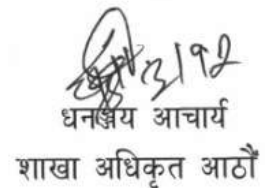 ३/१२
धनञ्जय आचार्य
शाखा अधिकृत आठौं